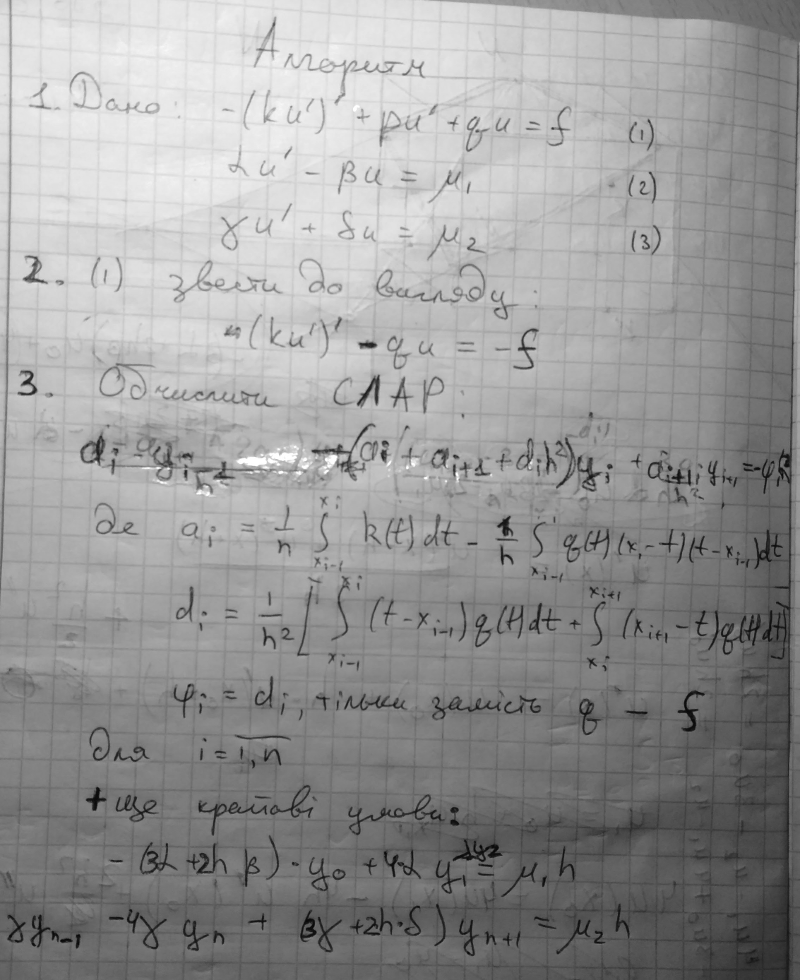 Алгоритм
1. Дано: -(ku')' + pu' + qu = f (1)
αu' - βu = μ₁ (2)
γu' + δu = μ₂ (3)
2. (1) звести до вигляду:
(ku')' - qu = -f
3. Обчислити СЛАР:
-(aᵢ + aᵢ₊₁ + dᵢh²)yᵢ + aᵢ₊₁ yᵢ₊₁ = -φᵢh²
де aᵢ = 1/h ∫_{xᵢ₋₁}^{xᵢ} k(t)dt - 1/h ∫_{xᵢ₋₁}^{xᵢ} q(t)(xᵢ-t)(t-xᵢ₋₁)dt
dᵢ = 1/h² [∫_{xᵢ₋₁}^{xᵢ} (t-xᵢ₋₁)q(t)dt + ∫_{xᵢ}^{xᵢ₊₁} (xᵢ₊₁-t)q(t)dt]
φᵢ = dᵢ, тільки замість q - f
для i = 1,n
+ ще крайові умови:
-(3α + 2hβ)·y₀ + 4α y₁ = μ₁h
γyₙ₋₁ - 4γ yₙ + (3γ + 2h·δ)yₙ₊₁ = μ₂h